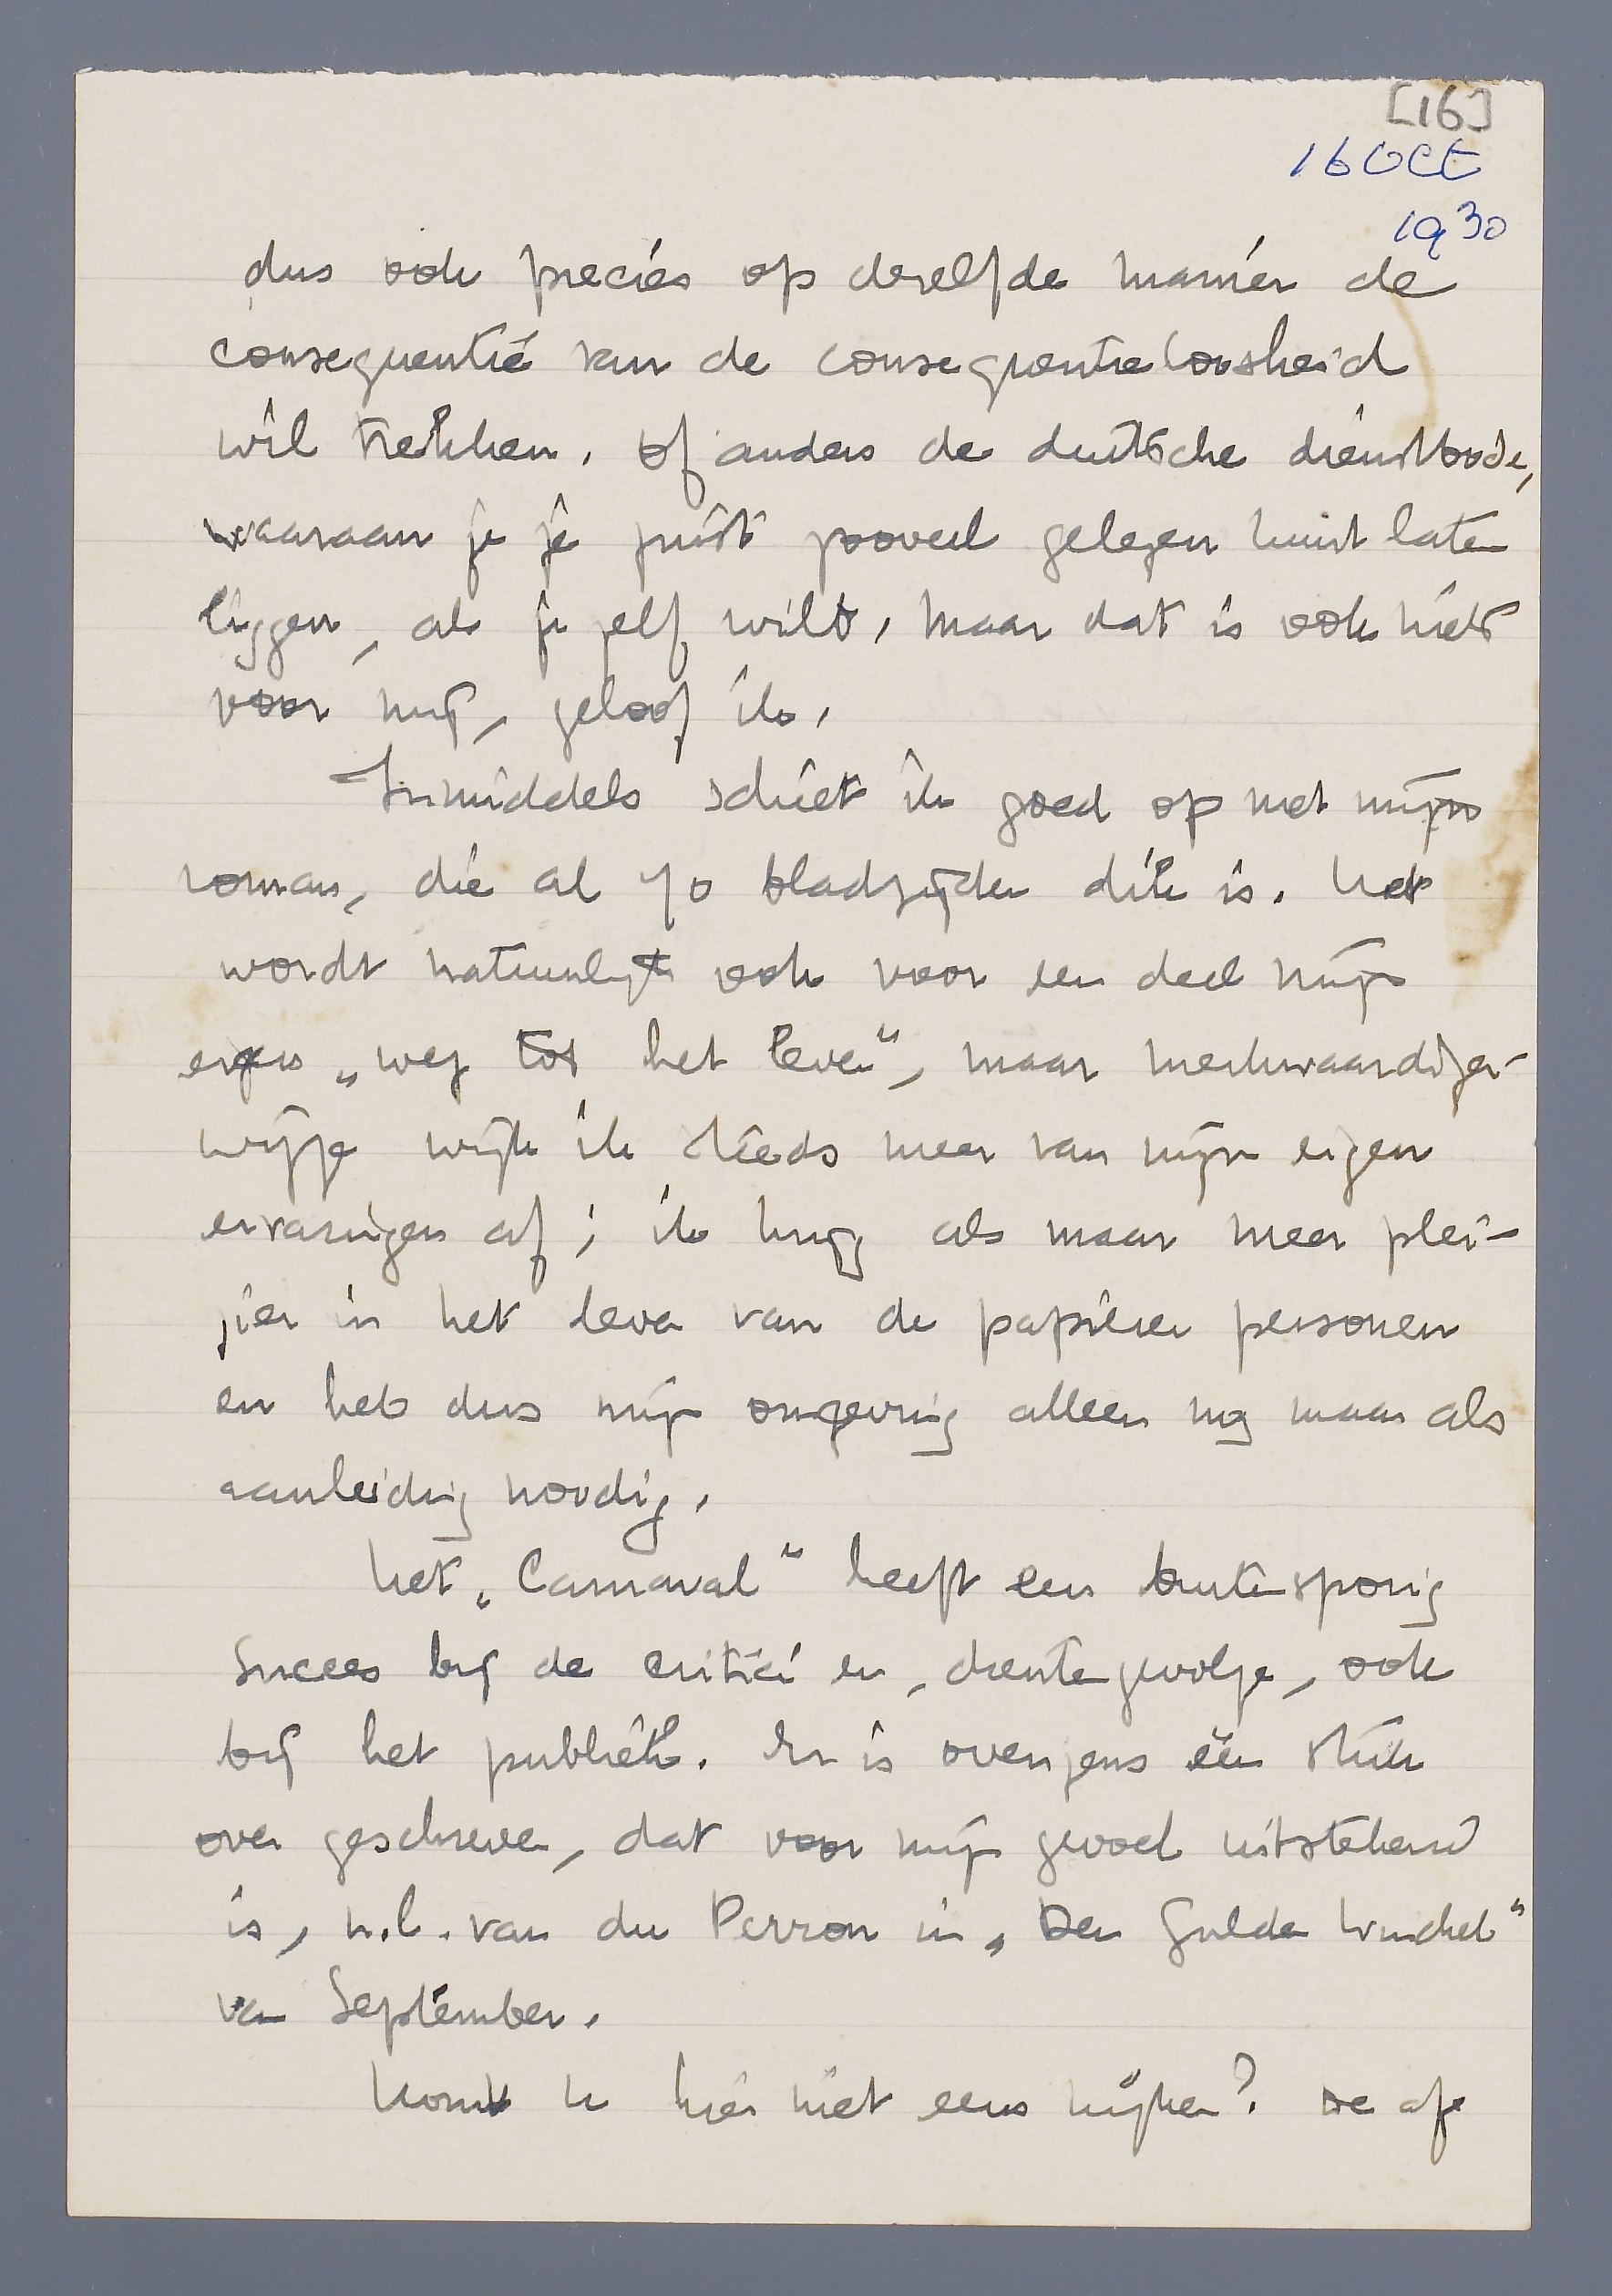 [16]
16 Oct
1930
dus ook precies op dezelfde manier de
consequentie van de consequentieloosheid
wil trekken. Of anders de duitsche dienstbode,
waaraan je je juist zooveel gelegen kunt laten
liggen, als je zelf wilt, maar dat is ook niets
voor mij, geloof ik.
Inmiddels schiet ik goed op met mijn
roman, die al 70 bladzijden dik is. Het
wordt natuurlijk ook voor een deel mijn
eigen „weg tot het leven”, maar merkwaardiger-
wijze wijk ik steeds meer van mijn eigen
ervaringen af; ik krijg als maar meer plei-
zier in het leven van de papieren personen
en heb dus mijn omgeving alleen nog maar als
aanleiding noodig.
Het „Carnaval” heeft een buitensporig
succes bij de critici en, dientengevolge, ook
bij het publiek. Er is overigens één stuk
over geschreven, dat voor mijn gevoel uitstekend
is, n.l. van du Perron in „Den Gulden Winckel”
van September.
Komt U hier niet eens kijken? De af